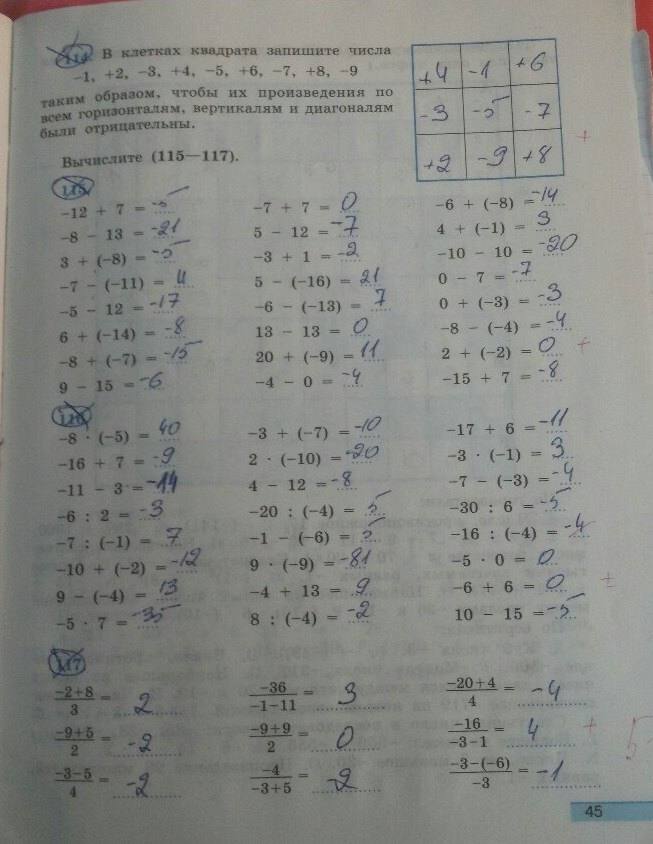 114. В клетках квадрата запишите числа
-1, +2, -3, +4, -5, +6, -7, +8, -9
таким образом, чтобы их произведения по
всем горизонталям, вертикалям и диагоналям
были отрицательны.
+4 -1 +6
-3 -5 -7
+2 -9 +8
+
Вычислите (115—117).
115
-12 + 7 = -5 -7 + 7 = 0 -6 + (-8) = -14
-8 - 13 = -21 5 - 12 = -7 4 + (-1) = 3
3 + (-8) = -5 -3 + 1 = -2 -10 - 10 = -20
-7 - (-11) = 4 5 - (-16) = 21 0 - 7 = -7
-5 - 12 = -17 -6 - (-13) = 7 0 + (-3) = -3
6 + (-14) = -8 13 - 13 = 0 -8 - (-4) = -4
-8 + (-7) = -15 20 + (-9) = 11 2 + (-2) = 0 +
9 - 15 = -6 -4 - 0 = -4 -15 + 7 = -8
116
-8 · (-5) = 40 -3 + (-7) = -10 -17 + 6 = -11
-16 + 7 = -9 2 · (-10) = -20 -3 · (-1) = 3
-11 - 3 = -14 4 - 12 = -8 -7 - (-3) = -4
-6 : 2 = -3 -20 : (-4) = 5 -30 : 6 = -5
-7 : (-1) = 7 -1 - (-6) = 5 -16 : (-4) = -4
-10 + (-2) = -12 9 · (-9) = -81 -5 · 0 = 0
9 - (-4) = 13 -4 + 13 = 9 -6 + 6 = 0 ±
-5 · 7 = -35 8 : (-4) = -2 10 - 15 = -5
117
-2+8/3 = 2 -36/-1-11 = 3 -20+4/4 = -4
-9+5/2 = -2 -9+9/2 = 0 -16/-3-1 = 4 + 5
-3-5/4 = -2 -4/-3+5 = -2 -3-(-6)/-3 = -1
45